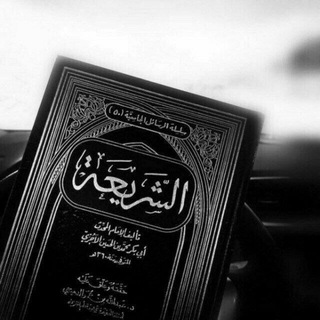 سلسلة الرسائل الجامعية (٥٠)
الشريعة
تأليف الإمام المحدث
أبي بكر محمد بن الحسين الآجري
المتوفى سنة ٣٦٠هـ